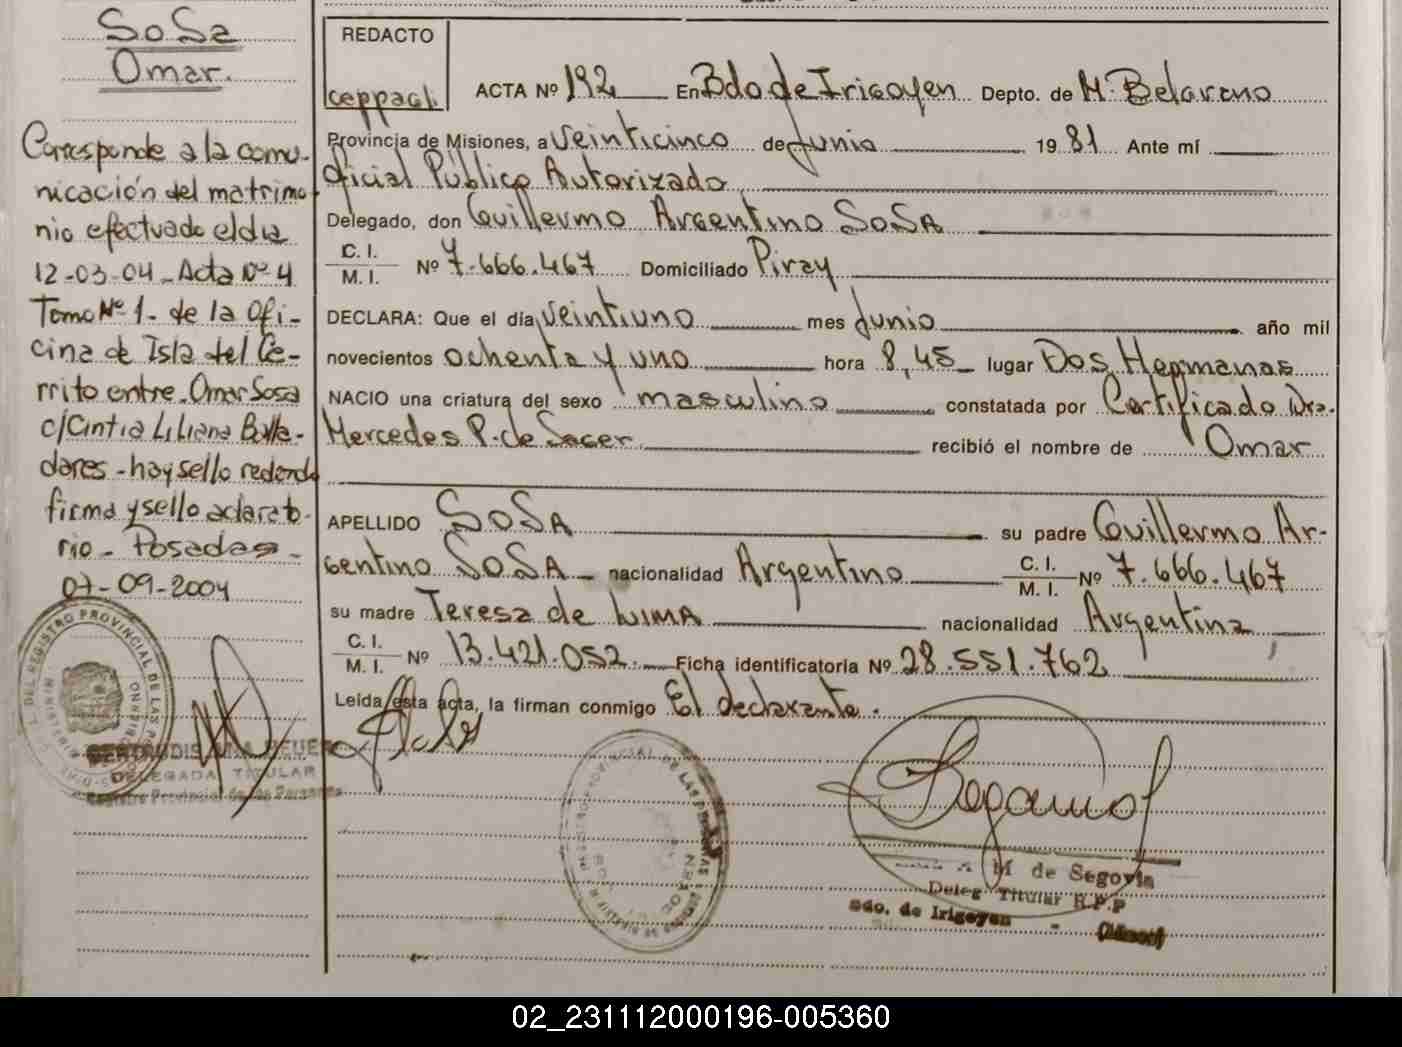 SoSa
Omar.
Corresponde a la comu-
nicación del matrimo-
nio efectuado el dia
12-03-04 - Acta Nº 4
Tomo Nº 1 - de la Ofi-
cina de Isla del Ce-
rrito entre Omar Sosa
c/Cintia Liliana
dares - hay sello redondo
firma y sello aclarato-
rio - Posadas -
07-09-2004
DEL REGISTRO PROVINCIAL DE LAS
DELEGADA TITULAR
Registro Provincial de las Personas
REDACTO
ceppacl.
ACTA Nº 192 En Bdo de Irigoyen Depto. de M. Belgrano
Provincia de Misiones, a veinticinco de Junio 19 81 Ante mí
Oficial Público Autorizado
Delegado, don Guillermo Argentino SoSA
C. I.
M. I. Nº 7.666.467 Domiciliado Piray
DECLARA: Que el día veintiuno mes Junio año mil
novecientos ochenta y uno hora 8,45 lugar Dos Hermanas
NACIO una criatura del sexo masculino constatada por Certificado Dra.
Mercedes P. de Sacer recibió el nombre de Omar
APELLIDO SoSA su padre Guillermo Ar-
gentino SoSA nacionalidad Argentino C. I. M. I. Nº 7.666.467
su madre Teresa de LIMA nacionalidad Argentina
C. I.
M. I. Nº 13.421.052. Ficha identificatoria Nº 28.551.762
Leída esta acta, la firman conmigo El declarante.
M de Segovia
Deleg Titular R.P.P
Bdo. de Irigoyen - (Misnes)
02_231112000196-005360